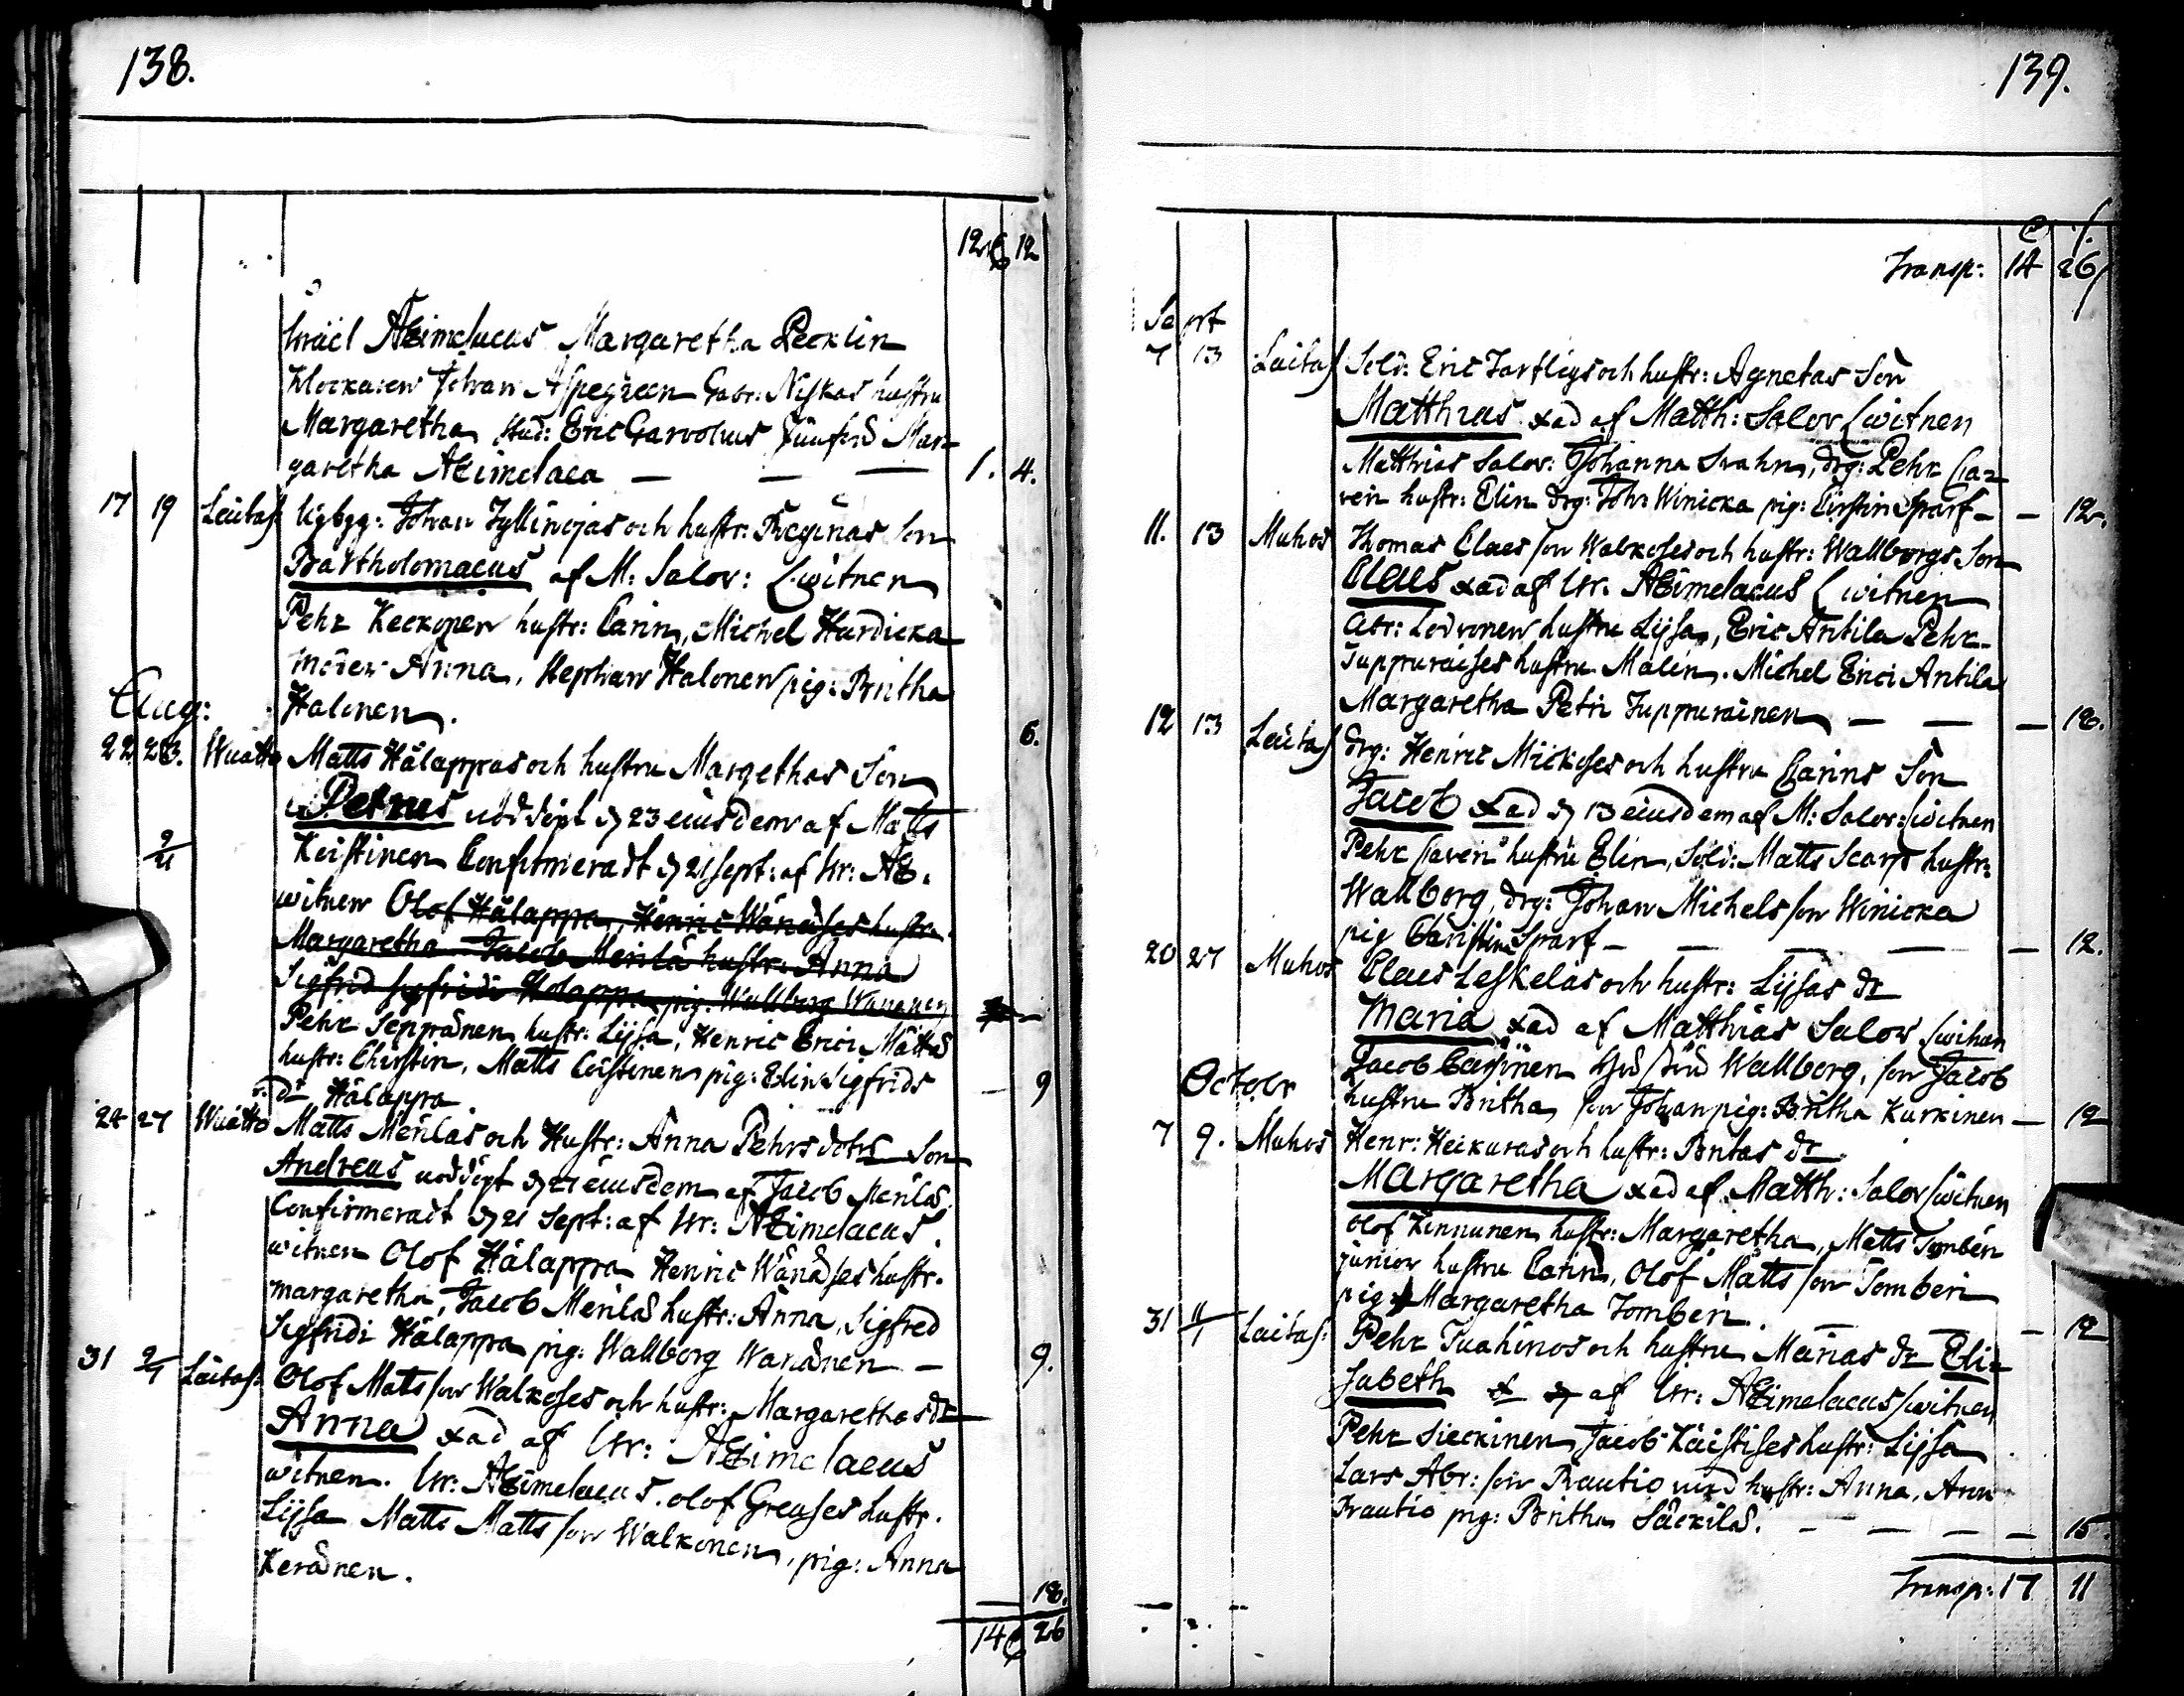 138.
12 12
Israel Aeimelaeus Margaretha Pecklin
Klockaren Johan Aspegreen Gabr: Niskas hustru
Margaretha stud: Eric Garvolius Junfrud Mar-
garetha Aeimelaea — — — 1. 4.
17 19 Laitas: ligbyg: Johan Jyllinojas och hustr: Reginas son
Bartholomaeus af M: Salov: (witnen
Pehr Keckonen hustr: Carin, Michel Hurdicka
moder Anna, Stephan Halonen pig: Britha
Aug: Halonen. 6.
22 23. Wuatto Matts Hålappas och hustru Margethas Son
Petrus nöddöpt d 23 eiusdem af Matts
9/21 Keistinen Confirmeradt d 21 sept: af hr: AE.
witnen Olof Hålappa, Henric Wänäses hustru
Margaretha Jacob Merilä hustr: Anna
Sigfrid Sigfridi Holappa pig: Wallborg Wananen
Pehr Seppänen hustr: Lijsa, Henric Erici Mättä
hustr: Chirstin, Matts Ceistinen pig: Elin Sigfrids — 9
dr Hålappa
24 27 Wuatto Matts Merilas och Hustr: Anna Pehrs dotrs Son
Andreas nöddöpt d 27 eiusdem af Jacob Merilä.
Confirmeradt d 21 Sept: af hr: AEimelaeus.
witnen Olof Hålappa Henric Wänäses hustr.
margaretha, Jacob Merilä hustr: Anna, Sigfred
Sigfridi Hålappa pig: Wallborg Wanänen — 9.
31 9/1 Laitas: Olof Mats son Walkoses och hustr: Margarethas dr
Anna xad af hr: AEimelaeus
witnen. hr: AEimelaeus. olof Greuses hustr.
Lijsa Matts Matts son Walkonen, pig: Anna
Keränen.
— 18.
14 26
139.
Transp: 14 26
Sept
7 13 Laitas Sold: Eric Tartligs och hustr: Agnetas Son
Matthias xad af Matth: Salov (witnen
Matthias Salov: Johanna Svahn, drg: Pehr Sar-
ven hustr: Elin drg: Joh: Winicka pig: Cirstin Sparf — — 12.
11. 13 Muhos Thomas Claes son Walkoses och hustr: Wallborgs Son
Claes xad af hr. AEimelaeus (witnen
abr: Lodvonen hustru Lijsa, Eric Antila Pehr
Tuppuraises hustru Malin. Michel Erici Antila
Margaretha Petri Tuppurainen — — — 18.
12 13 Laitas drg: Henric Mickoses och hustru Carins Son
Jacob xad d 13 eiusdem af M: Salov: (witnen
Pehr Saven hustru Elin, Sold: Matts Scarp hustr:
Wallborg, drg: Johan Michels son Winicka
pig Christin Sparf — — — — 12.
20 27 Muhos Claes Leskeläs och hustr: Lijsas dr
Maria xad af Matthias Salov (witnen
Jacob Wallborg, son Jacob
Octobr hustru Britha, son Johan pig: Britha Kurkinen — 12
7 9. Muhos Henr: Heickuras och hustr: Britas dr
Margaretha xad af Matth: Salov (witnen
Olof Kinnunen hustr: Margaretha, Matts Tomberi
junior hustru Carin, Olof Matts son Tomberi
pig: Margaretha Tomberi. — — — 12
31 11/1 Laitas: Pehr Tuahinos och hustru Marias dr Eli-
sabeth af hr: AEimelaeus (witnen
Pehr Sieckinen Jacob Kaistises hustr: Lijsa
Lars Abr: son Rautio med hustr: Anna, Ann
Rautio pig: Britha Säckilä. — — — — 15.
Transp: 17 11